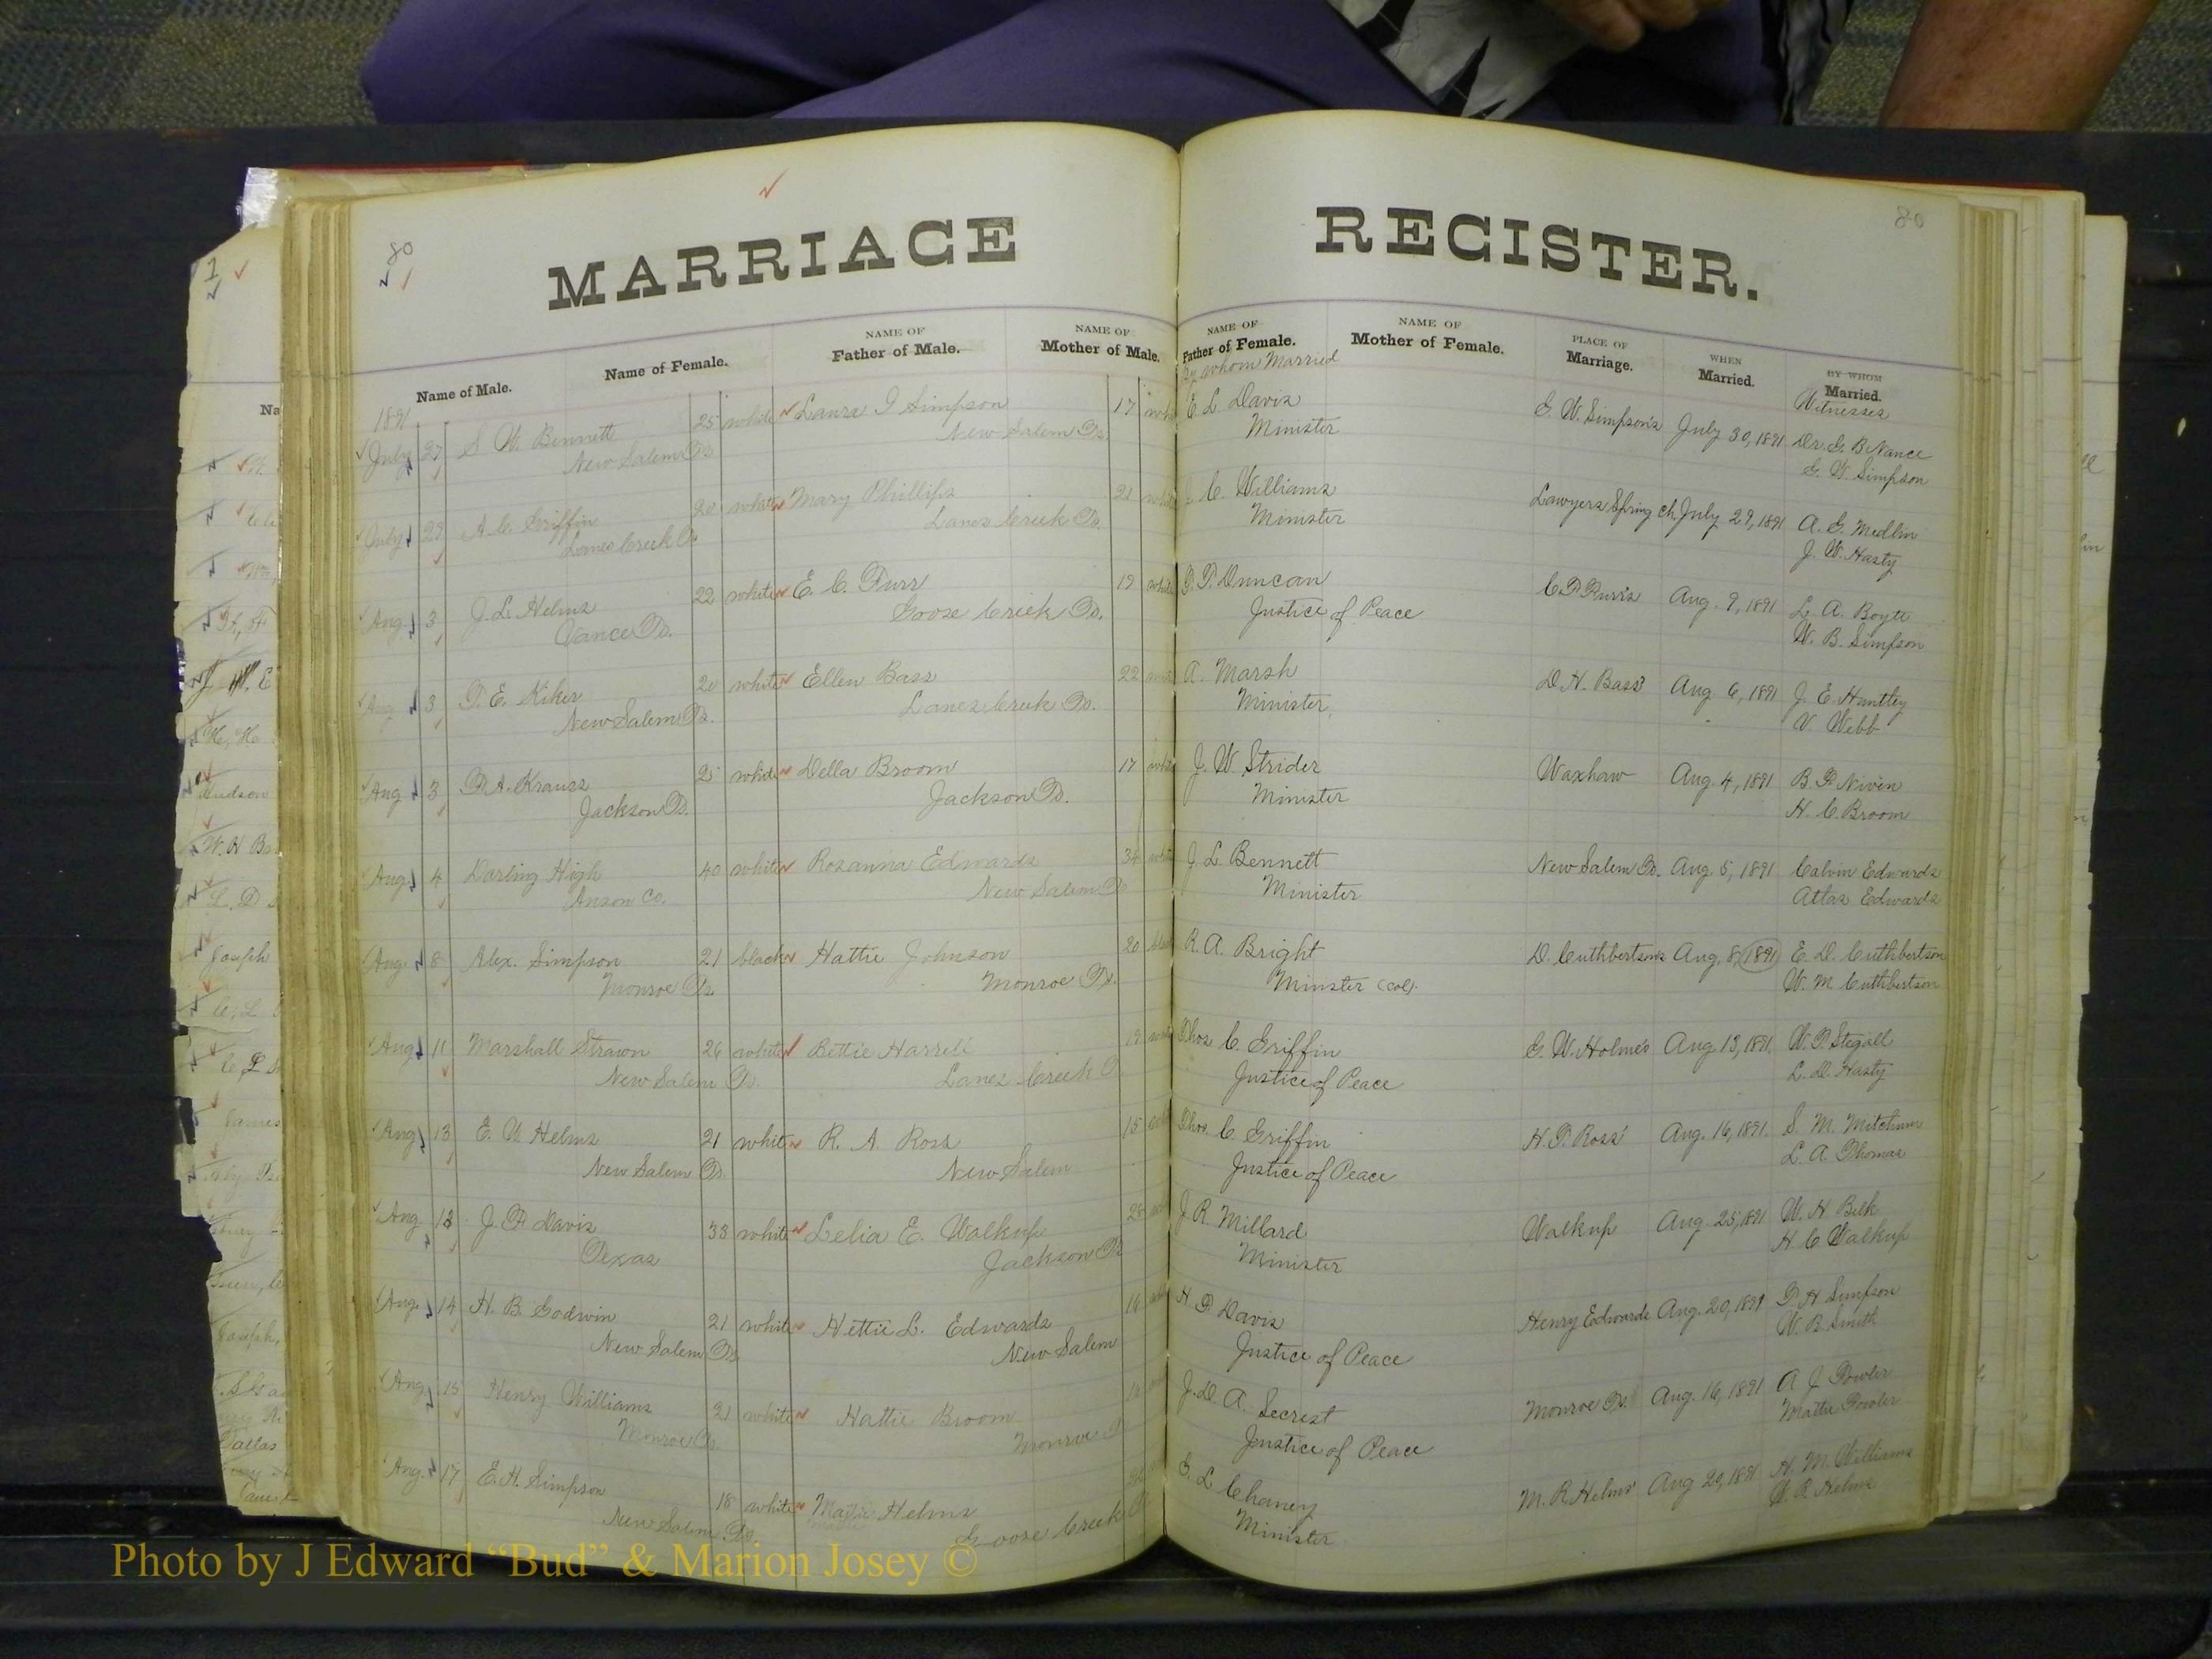 80
MARRIAGE
REGISTER.
80
Name of Male.
Name of Female.
NAME OF
Father of Male.
NAME OF
Mother of Male.
NAME OF
Father of Female.
By whom Married
NAME OF
Mother of Female.
PLACE OF
Marriage.
WHEN
Married.
BY WHOM
Married.
Witnesses
1891
July 27 S W. Bennett 25 white Laura I Simpson 17 E L Davis G. W. Simpson's July 30, 1891 Dr. G. B Nance
New Salem Ts New Salem Ts. Minister G. W. Simpson
July 29 A. C. Griffin 20 white Mary Phillips 21 C. Williams Lawyers Spring ch. July 29, 1891 A. G. Medlin
Lanes Creek Ts Lanes Creek Ts. Minister J. W. Hasty
Aug. 3 J. L. Helms 22 white E. C. Purr 19 white Duncan Aug. 9, 1891 L. A. Boyte
Vance Ts. Goose Creek Ts. Justice of Peace W. B. Simpson
Aug 3 T. E. Kiker 20 white Ellen Bass 22 A. Marsh D. H. Bass' Aug 6, 1891 J. E. Huntley
New Salem Ts. Lanes Creek Ts. Minister. V. Webb
Aug 3 Krauss white Della Broom 17 J. W. Strider Waxhaw Aug. 4, 1891 B. F. Niven
Jackson Ts. Jackson Ts. Minister H. C. Broom
Aug. 4 Darling High 40 white Rosanna Edwards 34 white J. L. Bennett New Salem Ts. Aug 5, 1891 Calvin Edwards
Anson Co. New Salem Ts Minister Atlas Edwards
Aug. 8 Alex. Simpson 21 black Hattie Johnson 20 R. A. Bright D. Cuthbertson's Aug. 8, 1891 E. D. Cuthbertson
Monroe Ts. Monroe Ts. Minster (col). W. M. Cuthbertson
Aug 11 Marshall Strawn 26 white Bettie Harrell 19 Thos C. Griffin G. W. Holmes Aug 13, 1891. W. P. Stegall
New Salem Ts. Lanes Creek Justice of Peace L. D. Hasty
Aug 13 E. W Helms 21 white R. A. Ross 15 Thos. C. Griffin H. P. Ross' Aug. 16, 1891. S. M. Mitchum
New Salem Ts. New Salem Justice of Peace L. A. Thomas
Aug 13 J. F. Davis 33 white Lelia E. Walkup 28 J R. Millard Walkup Aug. 25, 1891 W. H Belk
Texas Jackson Ts Minister H C Walkup
Aug. 14 H. B. Godwin 21 white Hettie L. Edwards 16 H. D. Davis Henry Edwards Aug. 20, 1891 T. H Simpson
New Salem Ts New Salem Justice of Peace W. B. Smith
Aug. 15 Henry Williams 21 white Hattie Broom J. D. A. Secrest Monroe Ts. Aug. 16, 1891 A J Fowler
Monroe Ts. Monroe Justice of Peace Mattie Fowler
Aug. 17 E. H. Simpson 18 white Helms L Chaney M. R Helms' Aug 20, 1891 H. M. Williams
New Salem Ts. Goose Creek Minister. Helms
Photo by J Edward “Bud” & Marion Josey ©